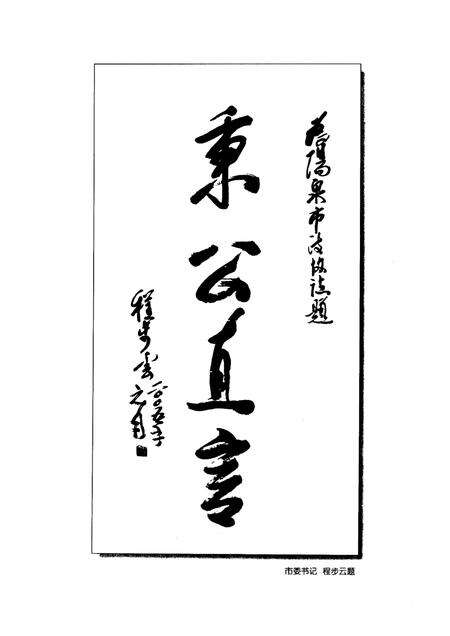 為陽泉市政協誌題
秉公直言
程步雲
二〇〇五年
元月
市委书记 程步云题